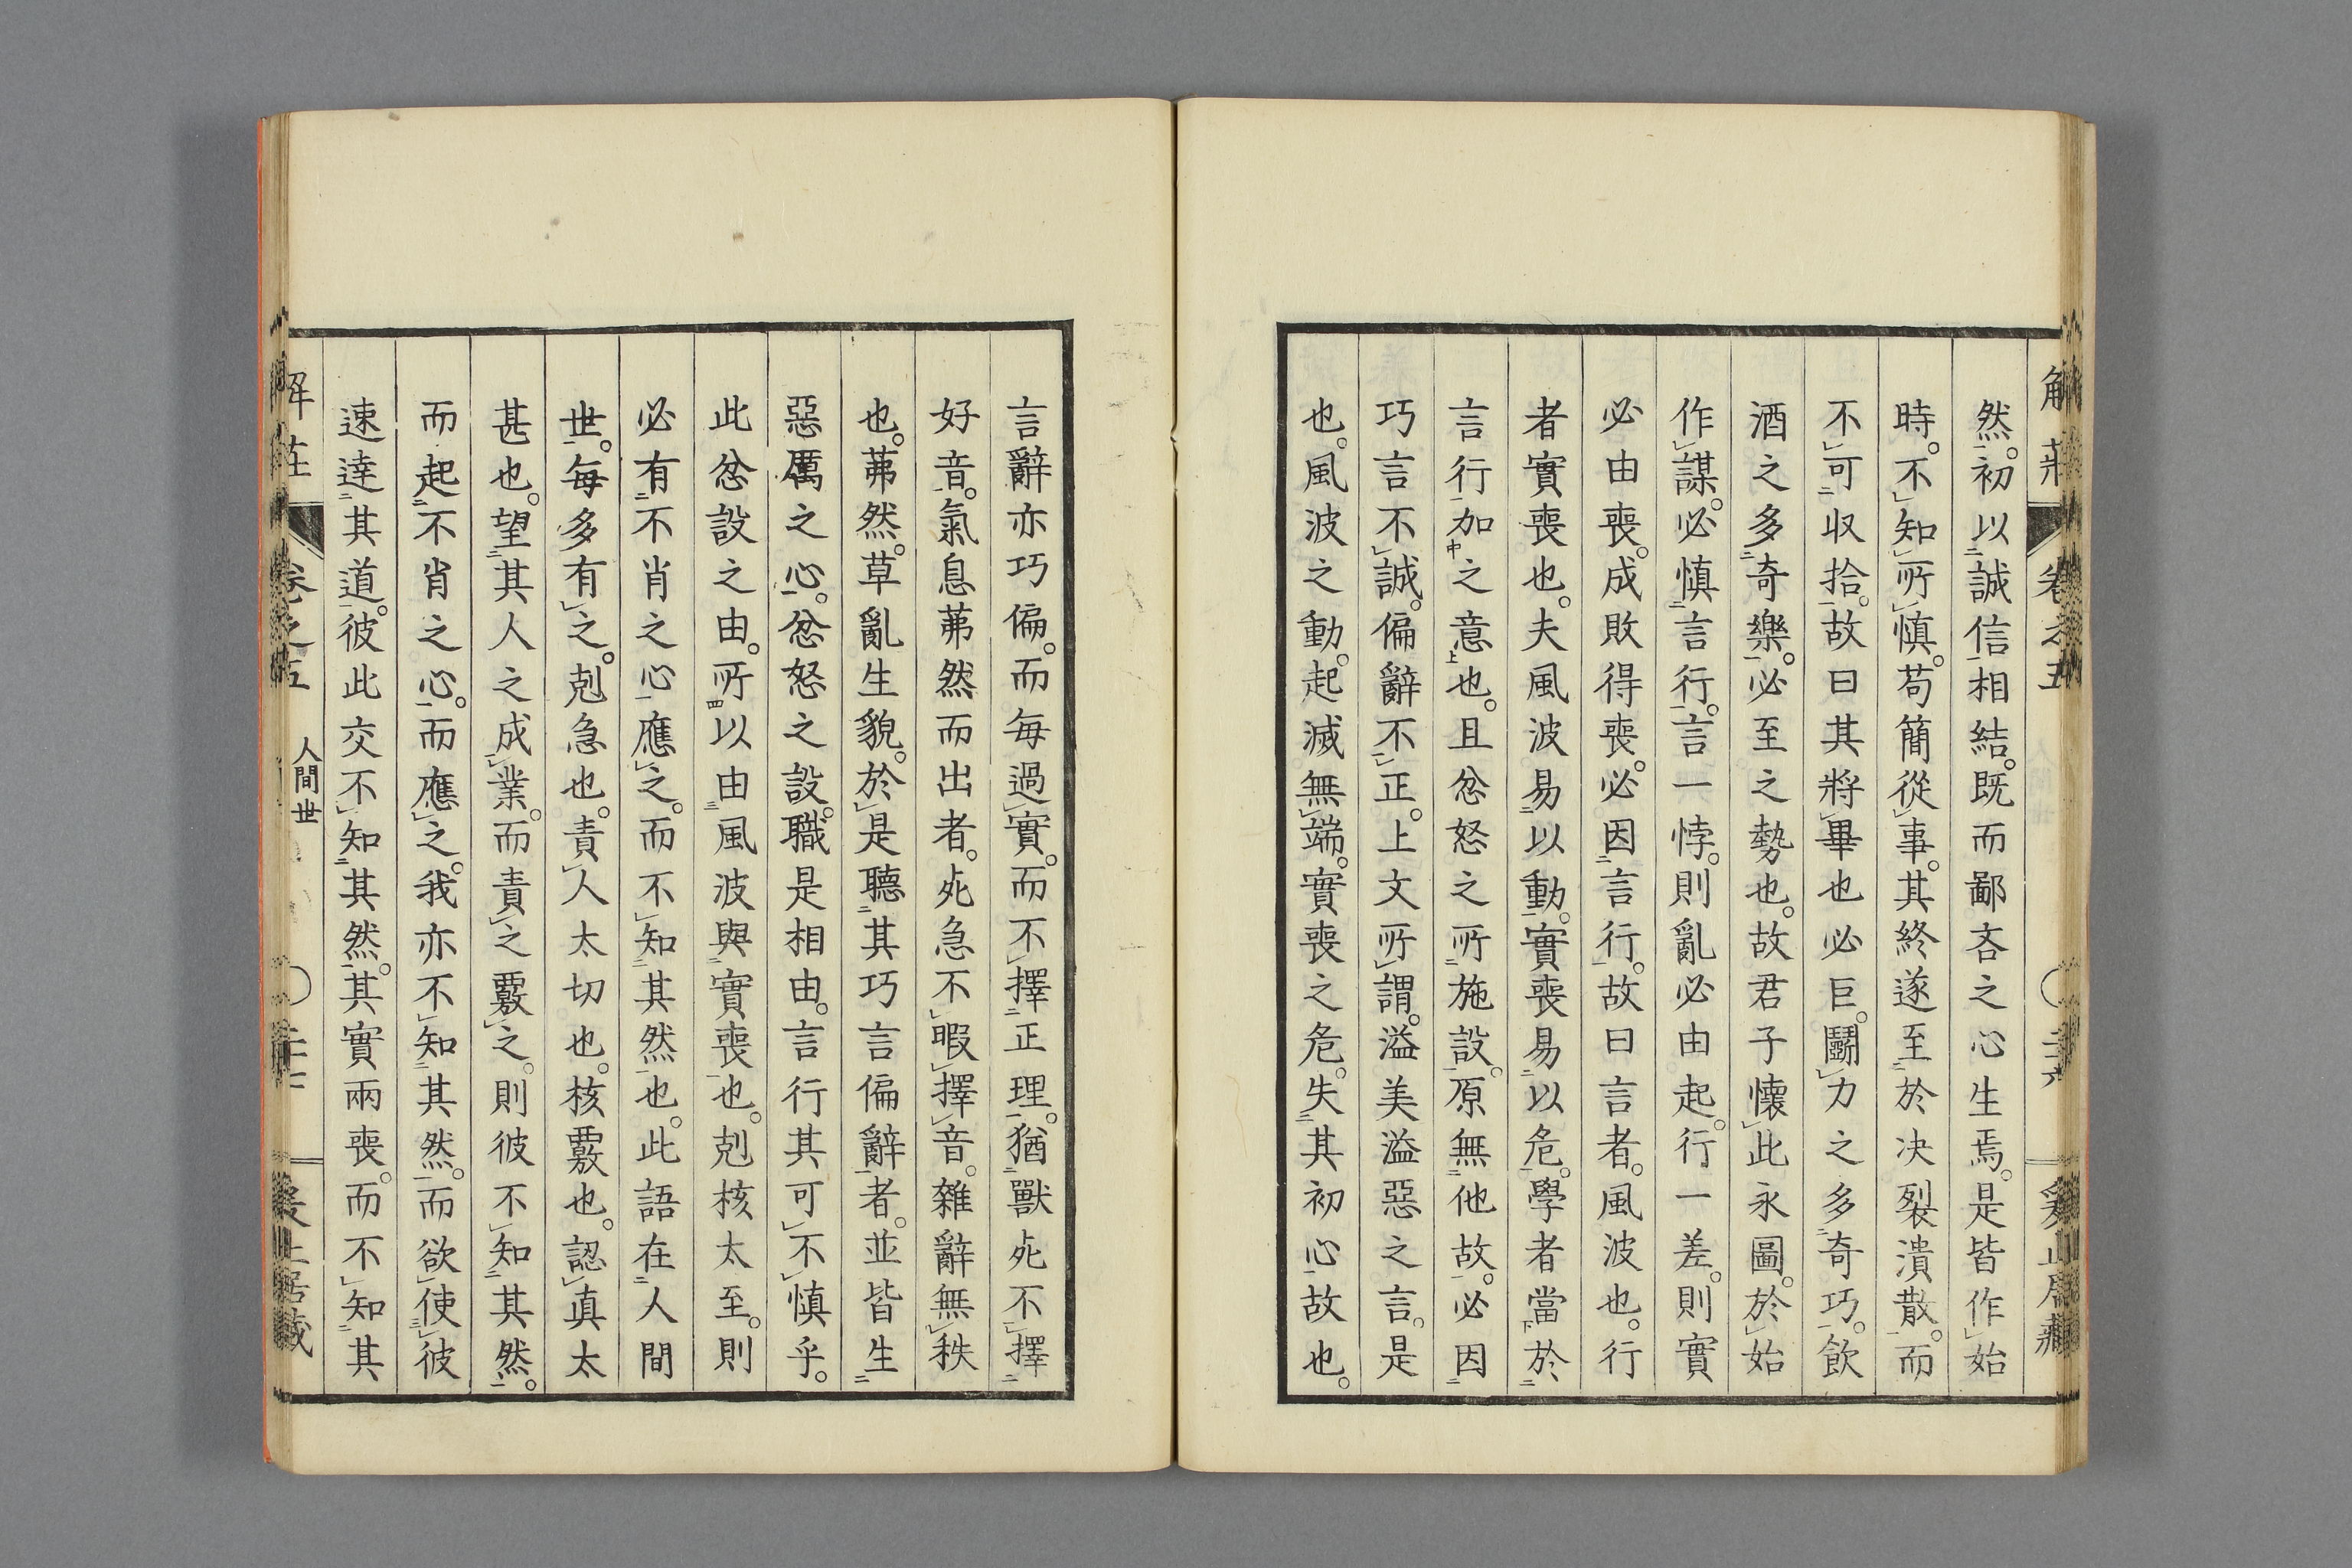 然。初以誠信相結。既而鄙吝之心生焉。是皆作始
時。不知所慎。苟簡從事。其終遂至於决裂潰散。而
不可収拾。故曰其將畢也必巨。鬪力之多奇巧。飲
酒之多奇樂。必至之勢也。故君子懷此永圖。於始
作謀。必慎言行。言一悖。則亂必由起。行一差。則實
必由喪。成敗得喪。必因言行。故曰言者。風波也。行
者實喪也。夫風波易以動。實喪易以危。學者當於
言行加之意也。且忿怒之所施設。原無他故。必因
巧言不誠。偏辭不正。上文所謂。溢美溢惡之言。是
也。風波之動。起滅無端。實喪之危。失其初心故也。
言辭亦巧偏。而每過實。而不擇正理。猶獸死不擇
好音。氣息茀然而出者。死急不暇擇音。雜辭無秩
也。茀然。草亂生貌。於是聽其巧言偏辭者。並皆生
惡厲之心。忿怒之設。職是相由。言行其可不慎乎。
此忿設之由。所以由風波與實喪也。剋核太至。則
必有不肖之心應之。而不知其然也。此語在人間
世。每多有之。剋急也。責人太切也。核覈也。認真太
甚也。望其人之成業。而責之覈之。則彼不知其然。
而起不肖之心。而應之。我亦不知其然。而欲使彼
速達其道。彼此交不知其然。其實兩喪。而不知其
人間世